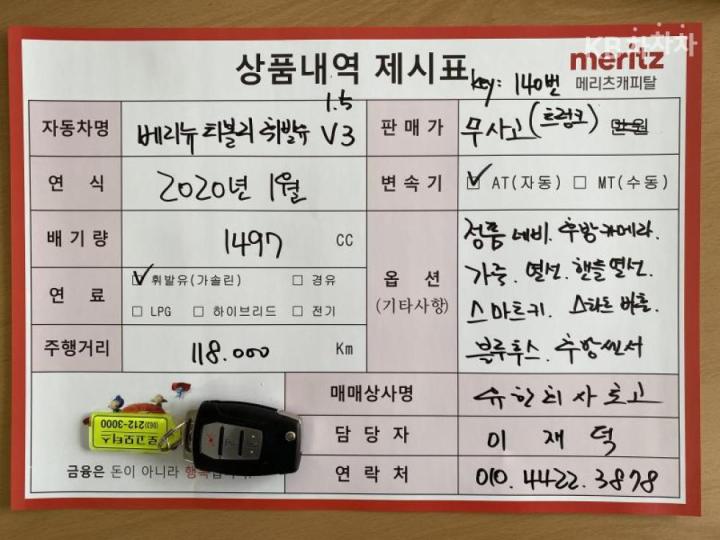 KB차차차
상품내역 제시표
meritz
메리츠캐피탈
key: 140번
자동차명
베리뉴 티볼리 휘발유 1.5 V3
판매가
무사고(트렁크) 만원
연 식
2020년 1월
변속기
☑ AT(자동) ☐ MT(수동)
배기량
1497 CC
옵 션
(기타사항)
정품 네비. 후방카메라.
가죽. 열선. 핸들열선.
스마트키. 스타트 버튼.
블루투스. 후방센서
연 료
☑ 휘발유(가솔린) ☐ 경유
☐ LPG ☐ 하이브리드 ☐ 전기
주행거리
118.000 Km
매매상사명
담당자
이 재 덕
연락처
010.4422.3878
로고모터스
(063)212-3000
금융은 돈이 아니라 행복입니다.